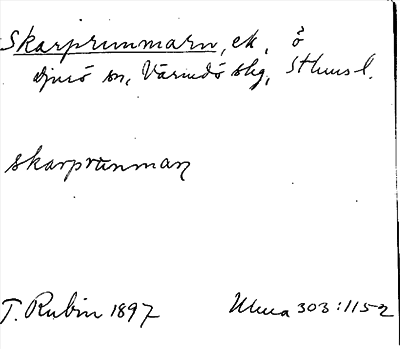 Skarprunmarn, ek, ö
djurö sn, Värmdö skg, Sthms l.
skarprunman
T. Rubin 1897 Ulma 303:1152